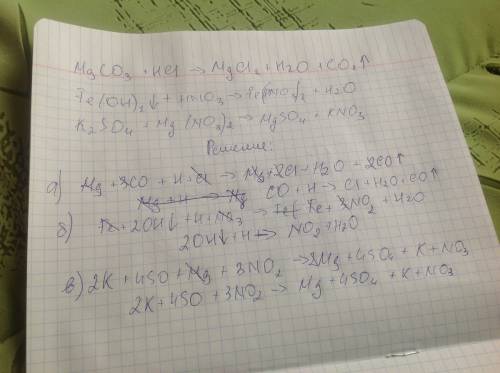 MgCO3 + HCl → MgCl2 + H2O + CO2↑
Fe(OH)2↓ + HNO3 → Fe(NO3)2 + H2O
K2SO4 + Mg(NO3)2 → MgSO4 + KNO3
Решение:
а) Mg + 3CO + H + Cl → Mg + 2Cl + H2O + 2CO↑
Mg + H → Mg CO + H → Cl + H2O + CO↑
б) Fe + 2OH↓ + H + → Fe + 3NO2 + H2O
2OH↓ + H → NO2 + H2O
в) 2K + 4SO + Mg + 3NO2 → 2Mg + 4SO4 + K + NO3
2K + 4SO + 3NO2 → Mg + 4SO4 + K + NO3